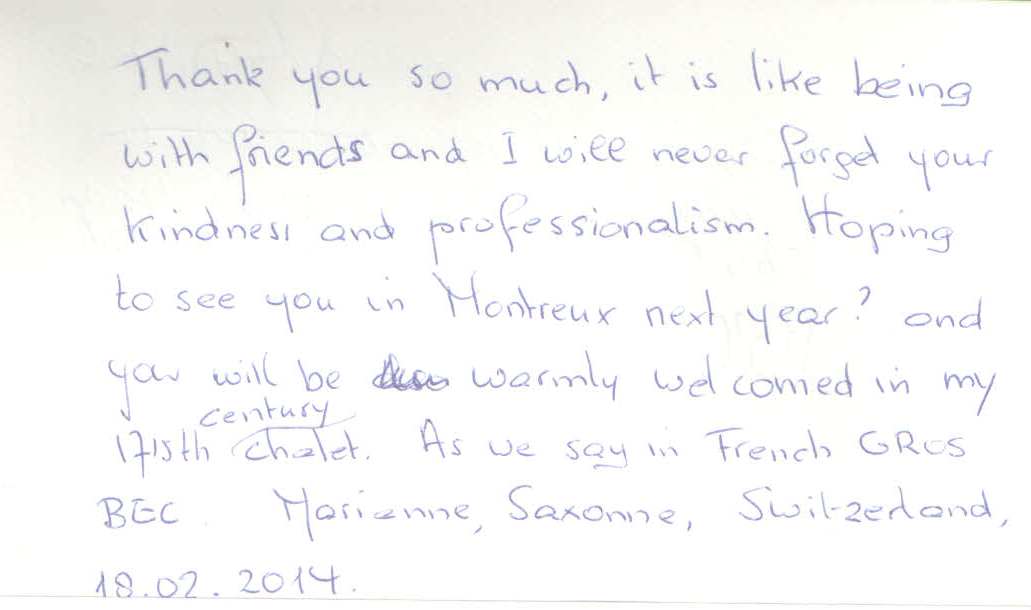 Thank you so much, it is like being
with friends and I will never forget your
kindness and professionalism. Hoping
to see you in Montreux next year? and
you will be warmly welcomed in my
century
chalet. As we say in French GROS
BEC Marianne, Saxonne, Switzerland,
18.02.2014.